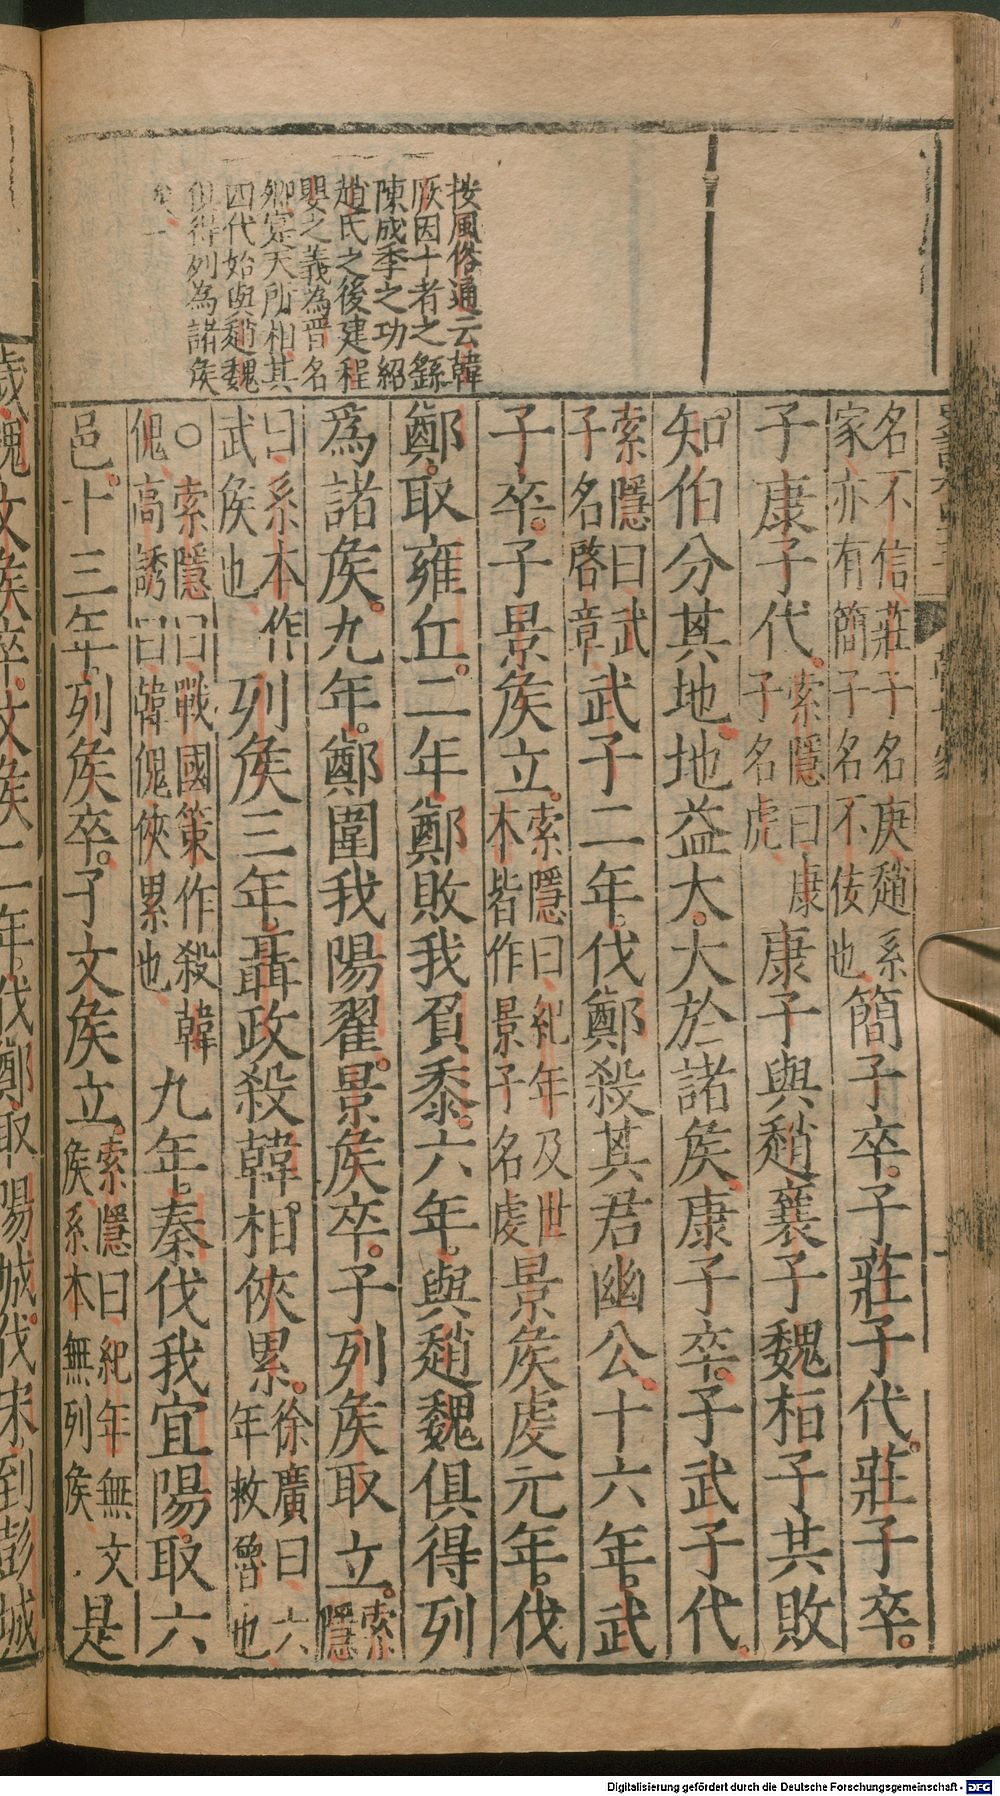 按風俗通云韓
厥因卜者之繇
陳成季之功紹
趙氏之後建程
嬰之義為晋名
卿寔天所相其
四代始與趙魏
俱得列為諸矦
名不信莊子名庚趙系
家亦有簡子名不佞也簡子卒。子莊子代。莊子卒。
子康子代。索隱曰康子名虎康子與趙襄子魏桓子共敗
知伯分其地。地益大。大於諸矦。康子卒。子武子代。
索隱曰武子名啓章武子二年。伐鄭殺其君幽公。十六年。武
子卒。子景矦立。索隱曰紀年及世本皆作景子名虔景矦虔元年。伐
鄭。取雍丘。二年。鄭敗我負黍。六年。與趙魏俱得列
爲諸矦。九年。鄭圍我陽翟。景矦卒。子列矦取立。索隱
曰系本作武矦也列矦三年。聶政殺韓相。俠累。徐廣曰六年救魯也
○索隱曰戰國策作殺韓傀高誘曰韓傀俠累也九年。秦伐我宜陽。取六
邑。十三年。列矦卒。子文矦立。索隱曰紀年無文矦系本無列矦是
歲魏文矦卒。文矦二年。伐鄭取陽城。伐宋到彭城
Digitalisierung gefördert durch die Deutsche Forschungsgemeinschaft - DFG